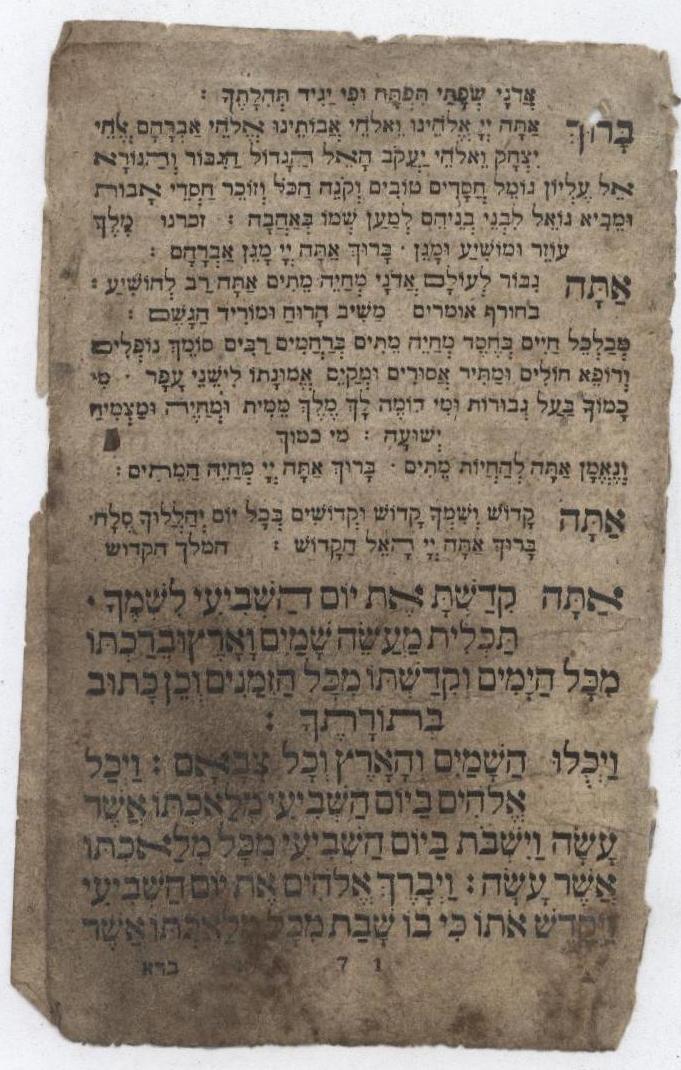 אֲדֹנָי שְׂפָתַי תִּפְתָּח וּפִי יַגִּיד תְּהִלָתֶךָ :
בָּרוּךְ אַתָּה יְיָ אֱלֹהֵינוּ וֵאלֹהֵי אֲבוֹתֵינוּ אֱלֹהֵי אַבְרָהָם אֱלֹהֵי
יִצְחָק וֵאלֹהֵי יַעֲקֹב הָאֵל הַגָּדוֹל הַגִּבּוֹר וְהַנּוֹרָא
אֵל עֶלְיוֹן גּוֹמֵל חֲסָדִים טוֹבִים וְקֹנֵה הַכֹּל וְזוֹכֵר חַסְדֵי אָבוֹת
וּמֵבִיא גוֹאֵל לִבְנֵי בְנֵיהֶם לְמַעַן שְׁמוֹ בְּאַהֲבָה : זכרנו מֶלֶךְ
עוֹזֵר וּמוֹשִׁיעַ וּמָגֵן · בָּרוּךְ אַתָּה יְיָ מָגֵן אַבְרָהָם :
אַתָּה גִבּוֹר לְעוֹלָם אֲדֹנָי מְחַיֵה מֵתִים אַתָּה רַב לְהוֹשִׁיעַ :
בחורף אומרים מַשִׁיב הָרוּחַ וּמוֹרִיד הַגֶּשֶׁם :
מְכַלְכֵּל חַיִים בְּחֶסֶד מְחַיֵה מֵתִים בְּרַחֲמִים רַבִּים סוֹמֵךְ נוֹפְלִים
וְרוֹפֵא חוֹלִים וּמַתִּיר אֲסוּרִים וּמְקַיֵם אֱמוּנָתוֹ לִישֵׁנֵי עָפָר · מִי
כָמוֹךָ בַּעַל גְבוּרוֹת וּמִי דוֹמֶה לָךְ מֶלֶךְ מֵמִית וּמְחַיֶה וּמַצְמִיחַ
יְשׁוּעָה : מי כמוך
וְנֶאֱמָן אַתָּה לְהַחְיוֹת מֵתִים · בָּרוּךְ אַתָּה יְיָ מְחַיֵה הַמֵתִים :
אַתָּה קָדוֹשׁ וְשִׁמְךָ קָדוֹשׁ וּקְדוֹשִׁים בְּכָל יוֹם יְהַלְלוּךָ סֶלָה·
בָּרוּךְ אַתָּה יְיָ הָאֵל הַקָדוֹשׁ : המלך הקדוש
אַתָּה קִדַשְׁתָּ אֶת יוֹם הַשְׁבִיעִי לִשְׁמֶךָ ·
תַּכְלִית מַעֲשֵׂה שָׁמַיִם וָאָרֶץ וּבֵרַכְתּוֹ
מִכָּל הַיָמִים וְקִדַשְׁתּוֹ מִכָּל הַזְמַנִים וְכֵן כָּתוּב
בְּתוֹרָתֶךָ :
וַיְכֻלוּ הַשָׁמַיִם וְהָאָרֶץ וְכָל צְבָאָם : וַיְכַל
אֱלֹהִים בַּיוֹם הַשְׁבִיעִי מְלַאכְתּוֹ אֲשֶׁר
עָשָׂה וַיִשְׁבֹּת בַּיוֹם הַשְׁבִיעִי מִכָּל מְלַאכְתּוֹ
אֲשֶׁר עָשָׂה : וַיְבָרֶךְ אֱלֹהִים אֶת יוֹם הַשְׁבִיעִי
וַיְקַדֵשׁ אֹתוֹ כִּי בוֹ שָׁבַת מִכָּל מְלַאכְתּוֹ אֲשֶׁר
7 1 ברא